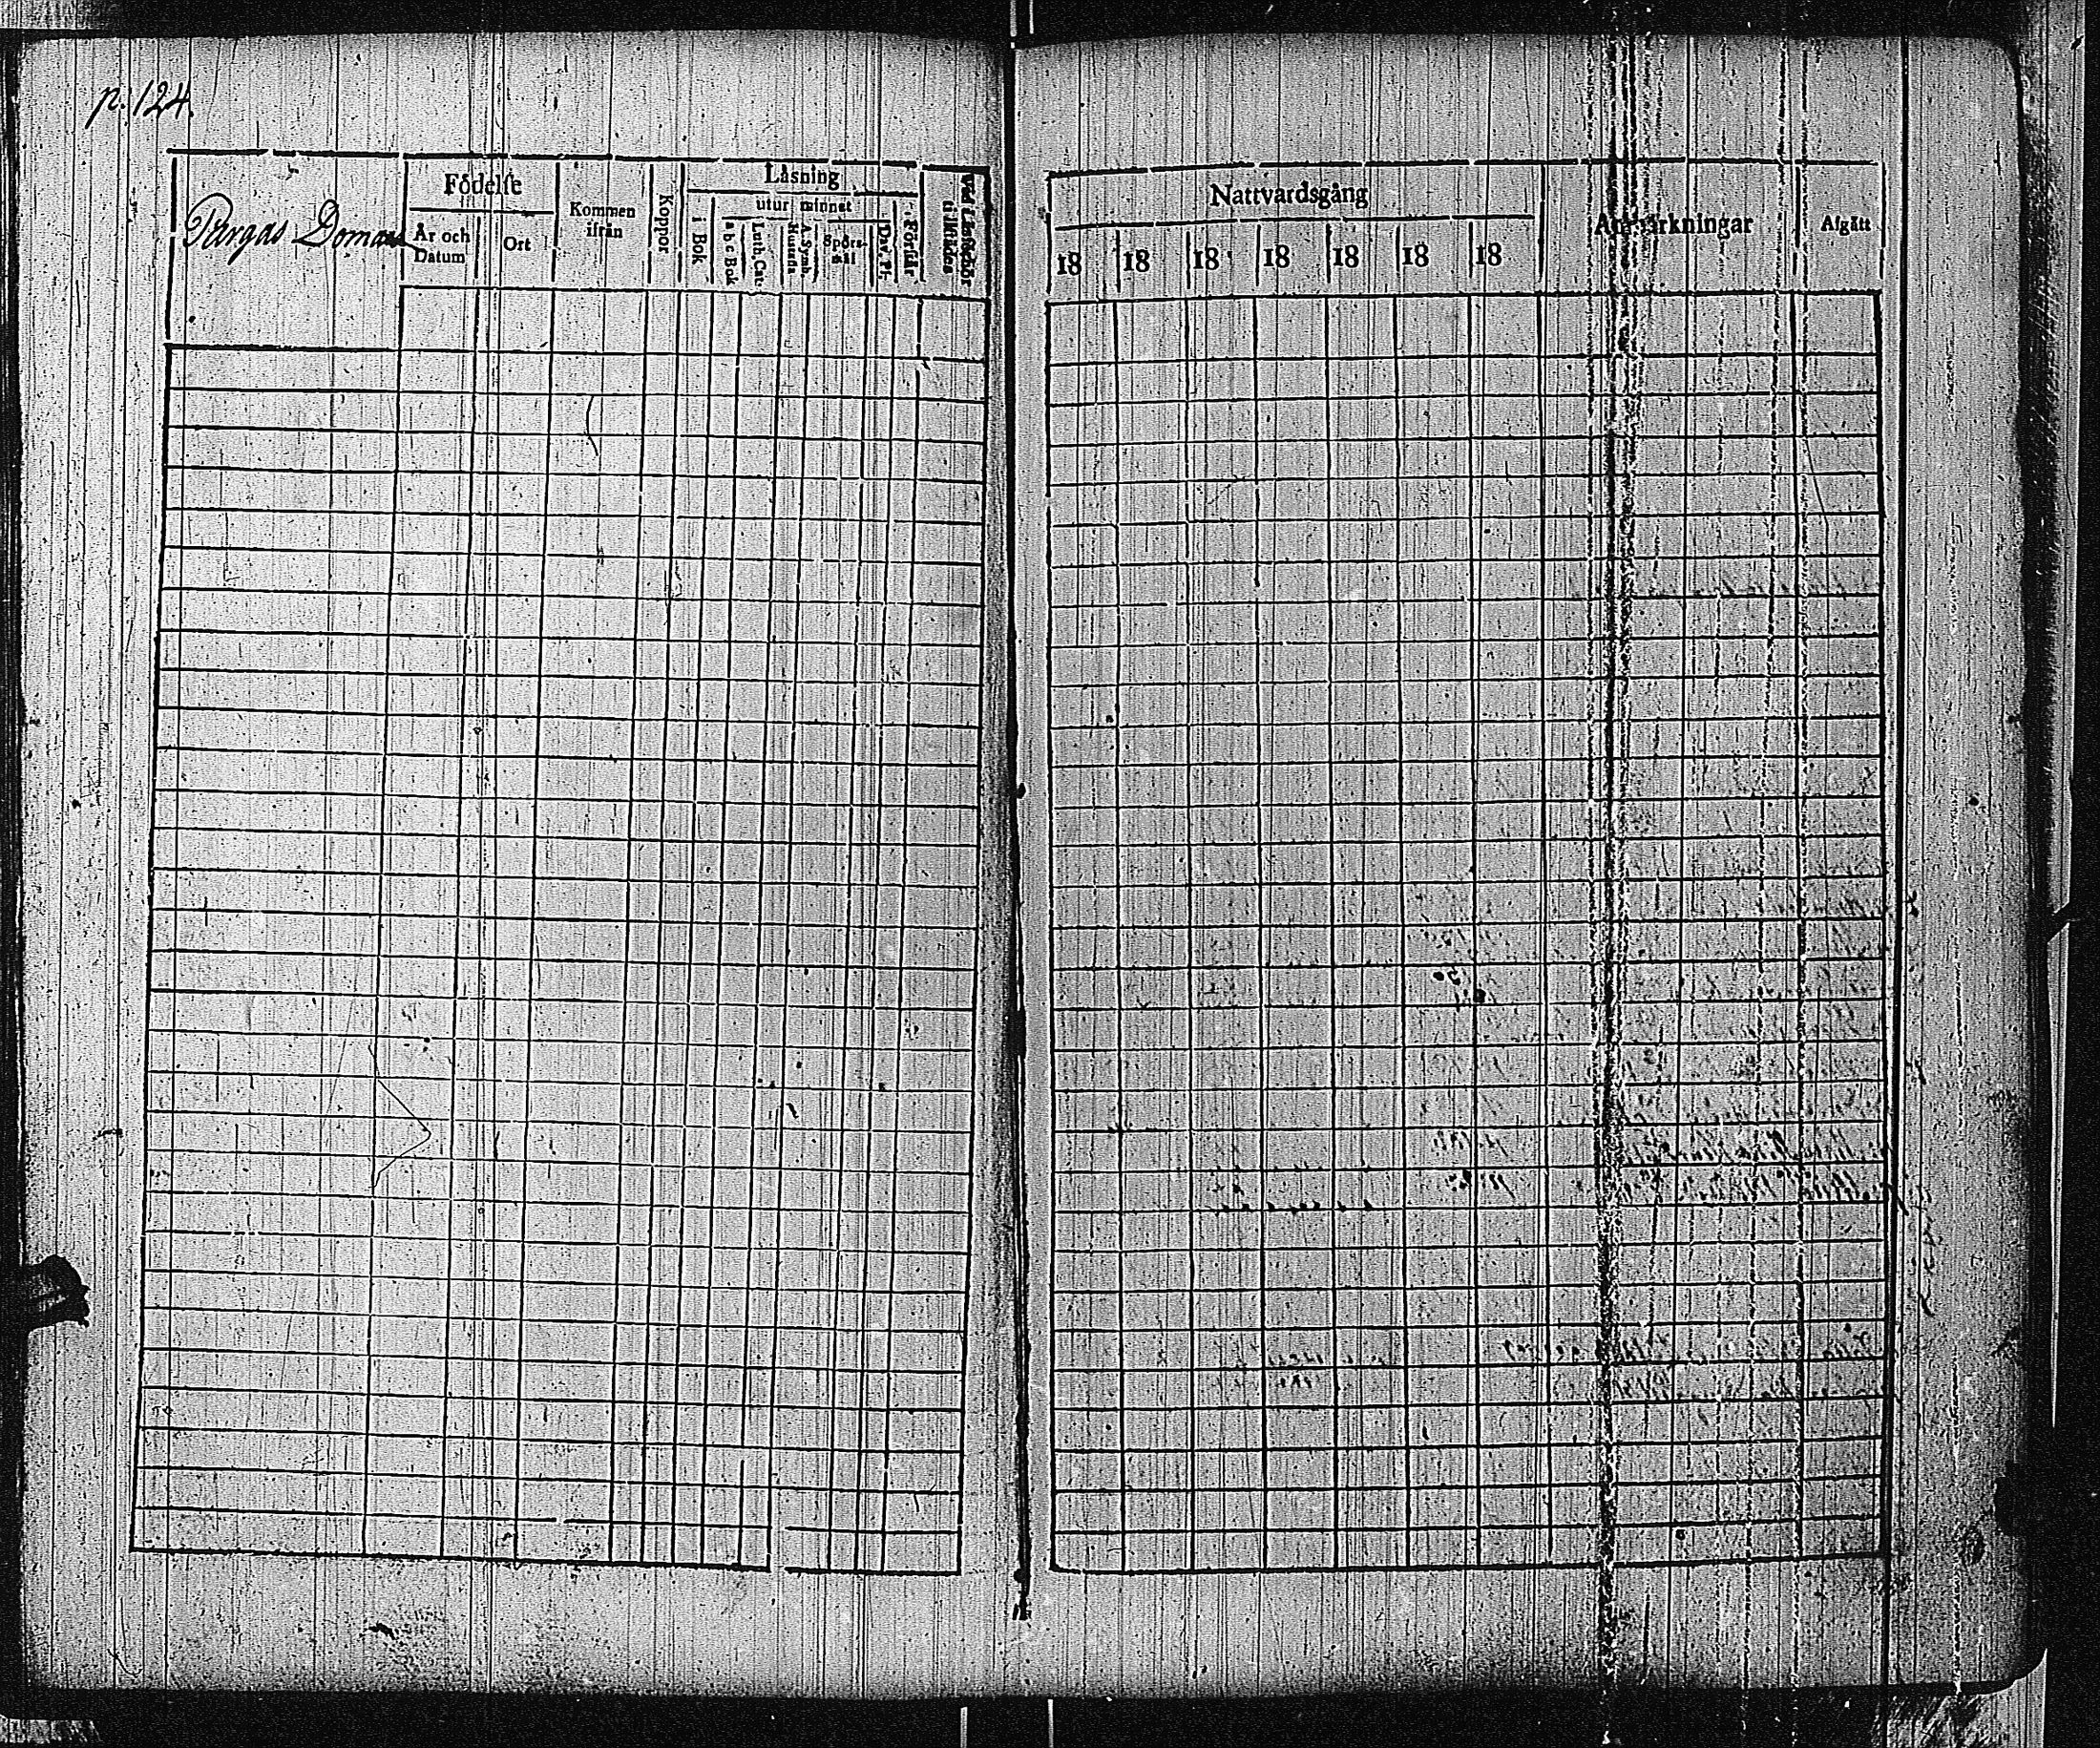 p. 124.
Pargas Doman
Födelse
År och Datum
Ort
Kommen ifrån
Koppor
Läsning
i Bok
utur minnet
a b c Bok
Luth. Cat.
Hustafla
A. Symb.
Spörsmål
Dav. Ps.
Förstår
Vid Läsförhör
Nattvardsgång
18 18 18 18 18 18 18
Anmärkningar
Afgått